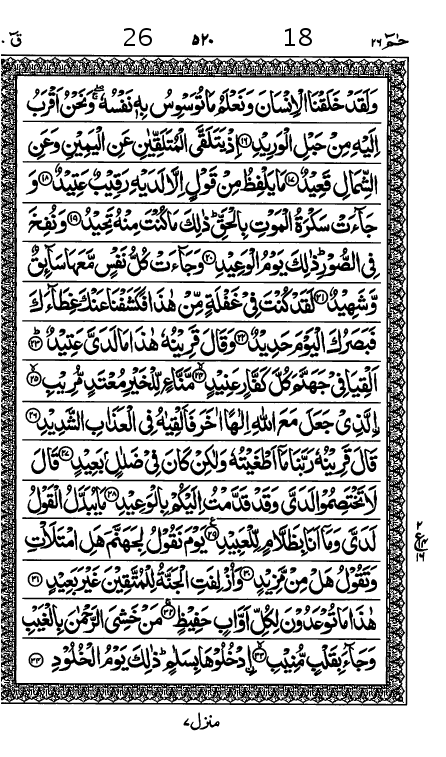 قٓ ٥٠ 26 ٥٢٠ 18 حٰمٓ ٢٦
وَلَقَدْ خَلَقْنَا الْاِنْسَانَ وَنَعْلَمُ مَا تُوَسْوِسُ بِهٖ نَفْسُهٗ ۖۚ وَنَحْنُ اَقْرَبُ
اِلَيْهِ مِنْ حَبْلِ الْوَرِيْدِ ﴿١٦﴾ اِذْ يَتَلَقَّى الْمُتَلَقِّيٰنِ عَنِ الْيَمِيْنِ وَعَنِ
الشِّمَالِ قَعِيْدٌ ﴿١٧﴾ مَا يَلْفِظُ مِنْ قَوْلٍ اِلَّا لَدَيْهِ رَقِيْبٌ عَتِيْدٌ ﴿١٨﴾ وَ
جَآءَتْ سَكْرَةُ الْمَوْتِ بِالْحَقِّ ؕ ذٰلِكَ مَا كُنْتَ مِنْهُ تَحِيْدُ ﴿١٩﴾ وَنُفِخَ
فِى الصُّوْرِ ؕ ذٰلِكَ يَوْمُ الْوَعِيْدِ ﴿٢٠﴾ وَجَآءَتْ كُلُّ نَفْسٍ مَّعَهَا سَآئِقٌ
وَّشَهِيْدٌ ﴿٢١﴾ لَقَدْ كُنْتَ فِىْ غَفْلَةٍ مِّنْ هٰذَا فَكَشَفْنَا عَنْكَ غِطَآءَكَ
فَبَصَرُكَ الْيَوْمَ حَدِيْدٌ ﴿٢٢﴾ وَقَالَ قَرِيْنُهٗ هٰذَا مَا لَدَىَّ عَتِيْدٌ ؕ ﴿٢٣﴾
اَلْقِيَا فِىْ جَهَنَّمَ كُلَّ كَفَّارٍ عَنِيْدٍ ۙ ﴿٢٤﴾ مَّنَّاعٍ لِّلْخَيْرِ مُعْتَدٍ مُّرِيْبِ ۙ ﴿٢٥﴾
اۨلَّذِىْ جَعَلَ مَعَ اللّٰهِ اِلٰهًا اٰخَرَ فَاَلْقِيٰهُ فِى الْعَذَابِ الشَّدِيْدِ ﴿٢٦﴾
قَالَ قَرِيْنُهٗ رَبَّنَا مَاۤ اَطْغَيْتُهٗ وَلٰكِنْ كَانَ فِىْ ضَلٰلٍۭ بَعِيْدٍ ﴿٢٧﴾ قَالَ
لَا تَخْتَصِمُوْا لَدَىَّ وَقَدْ قَدَّمْتُ اِلَيْكُمْ بِالْوَعِيْدِ ﴿٢٨﴾ مَا يُبَدَّلُ الْقَوْلُ
لَدَىَّ وَمَاۤ اَنَا بِظَلَّامٍ لِّلْعَبِيْدِ ﴿٢٩﴾ ع يَوْمَ نَقُوْلُ لِجَهَنَّمَ هَلِ امْتَلَاْتِ
وَتَقُوْلُ هَلْ مِنْ مَّزِيْدٍ ﴿٣٠﴾ وَاُزْلِفَتِ الْجَنَّةُ لِلْمُتَّقِيْنَ غَيْرَ بَعِيْدٍ ﴿٣١﴾
هٰذَا مَا تُوْعَدُوْنَ لِكُلِّ اَوَّابٍ حَفِيْظٍ ۚ ﴿٣٢﴾ مَنْ خَشِىَ الرَّحْمٰنَ بِالْغَيْبِ
وَجَآءَ بِقَلْبٍ مُّنِيْبِ ۙ ﴿٣٣﴾ اۨدْخُلُوْهَا بِسَلٰمٍ ؕ ذٰلِكَ يَوْمُ الْخُلُوْدِ ﴿٣٤﴾
٢
ع ١٤
١٦
منزل ٧